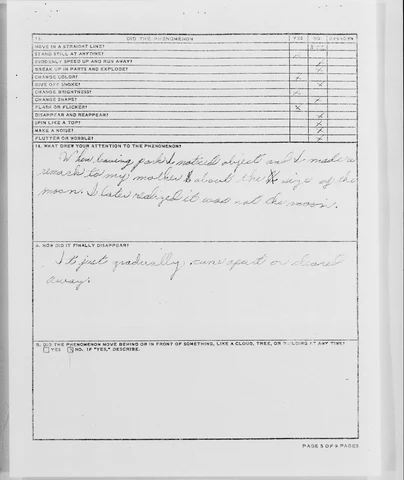 DID THE PHENOMENON YES NO UNKNOWN
MOVE IN A STRAIGHT LINE?
STAND STILL AT ANYTIME?
SUDDENLY SPEED UP AND RUN AWAY?
BREAK UP IN PARTS AND EXPLODE?
CHANGE COLOR?
GIVE OFF SMOKE?
CHANGE BRIGHTNESS?
CHANGE SHAPE?
FLASH OR FLICKER?
DISAPPEAR AND REAPPEAR?
SPIN LIKE A TOP?
MAKE A NOISE?
FLUTTER OR WOBBLE?
WHAT DREW YOUR ATTENTION TO THE PHENOMENON?
When leaving park I noticed object and I made a
remark to my mother about the size of the
moon. I later realized it was not the moon.
HOW DID IT FINALLY DISAPPEAR?
It just gradually came apart or cleared
away.
DID THE PHENOMENON MOVE BEHIND OR IN FRONT OF SOMETHING, LIKE A CLOUD, TREE, OR BUILDING AT ANY TIME?
YES NO. IF "YES," DESCRIBE.
PAGE 5 OF 9 PAGES